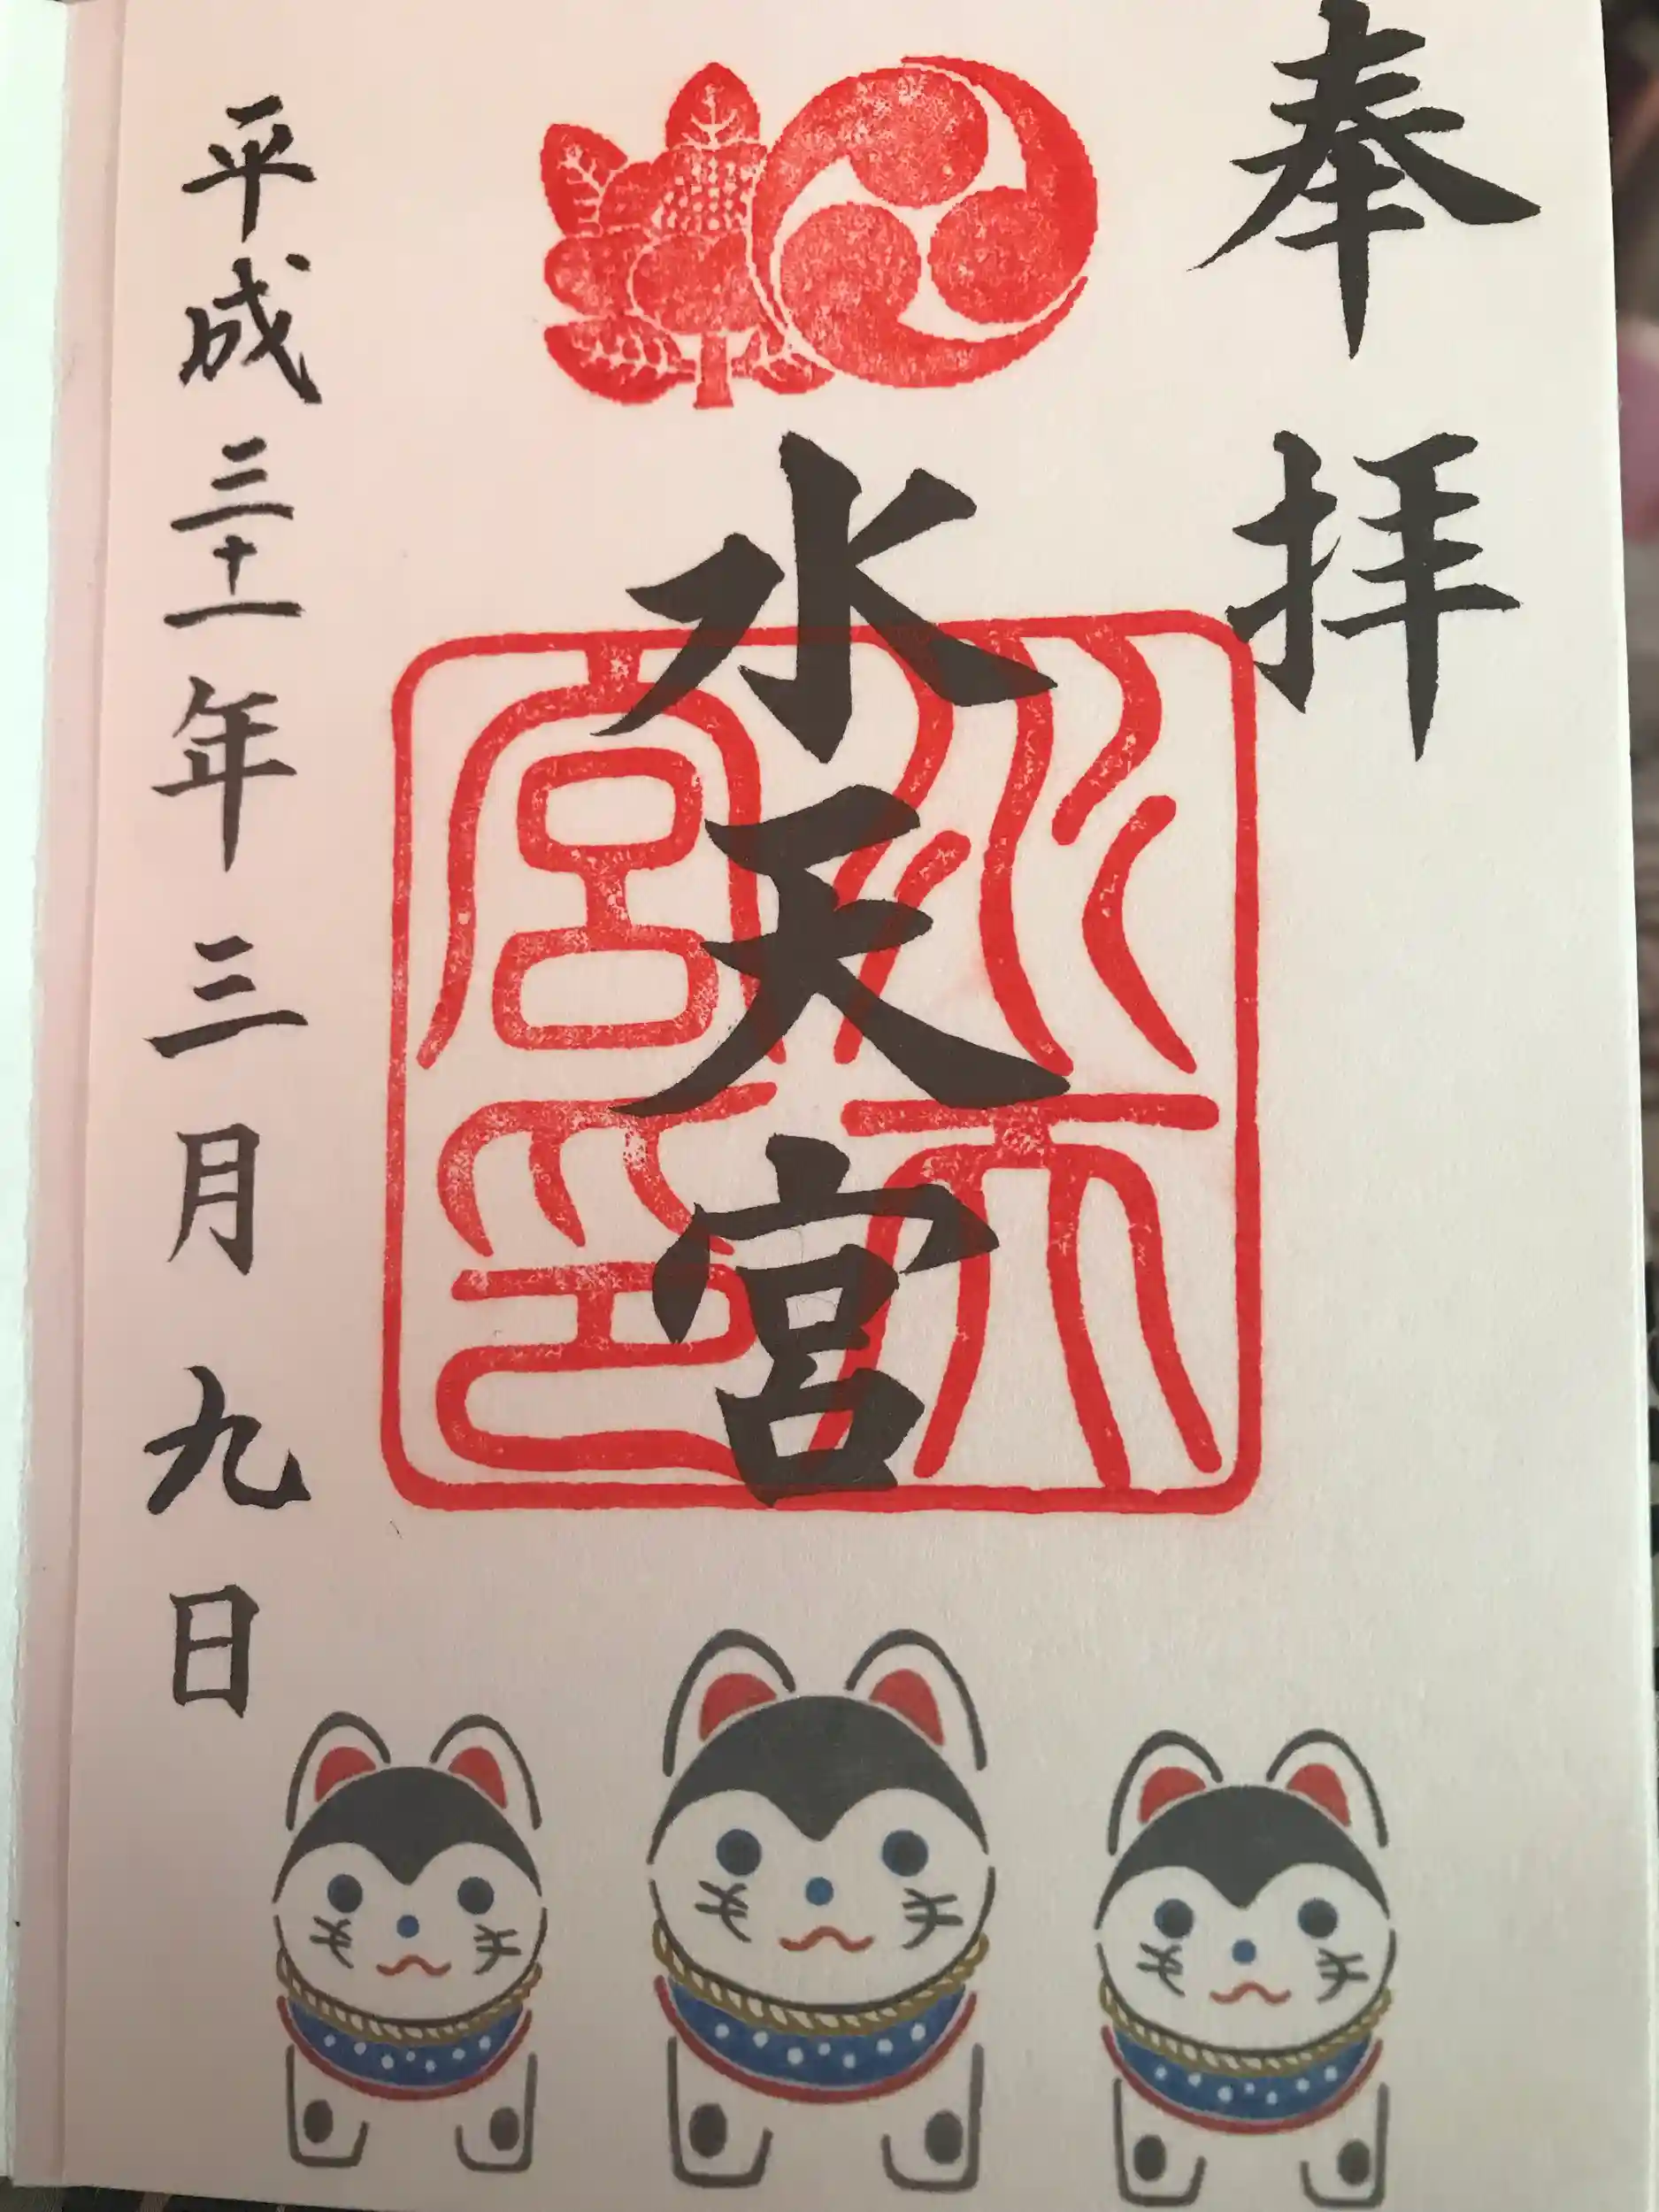 奉拝
水天宮
水天宮印
平成三十一年三月九日